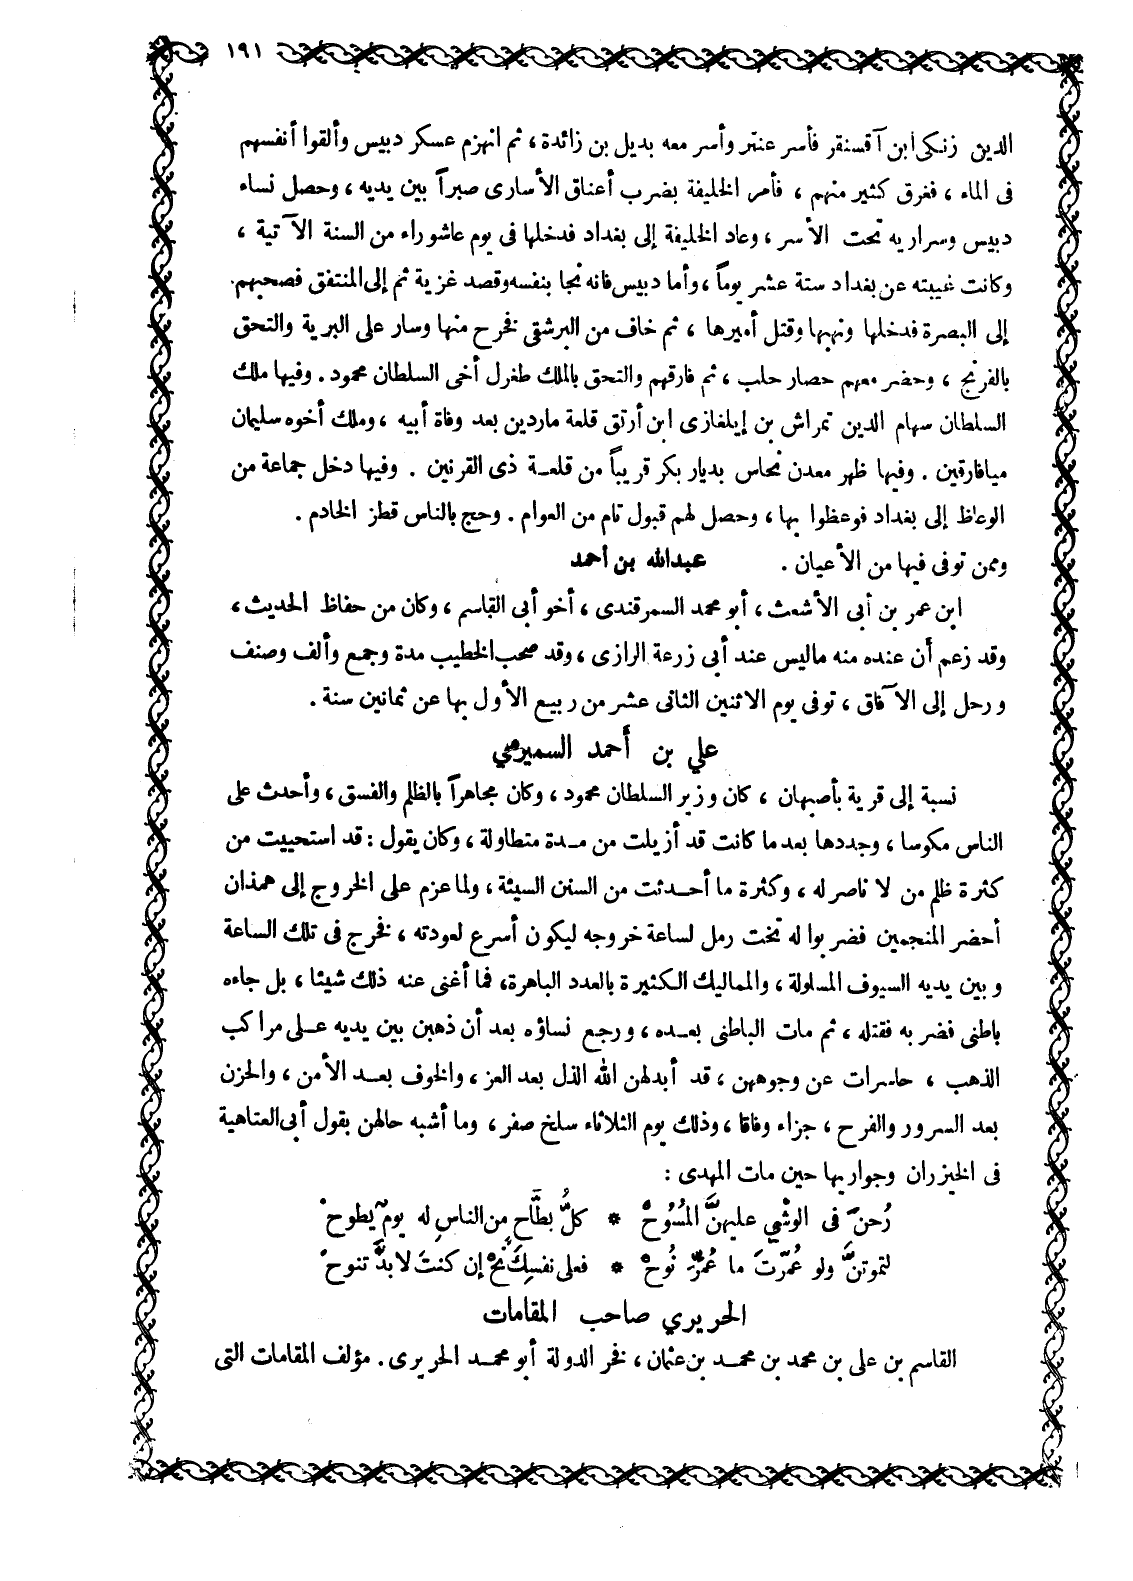 ١٩١
الدين زنكى ابن آقسنقر فأسر عنتر وأسر معه بديل بن زائدة ، ثم انهزم عسكر دبيس وألقوا أنفسهم
فى الماء ، فغرق كثير منهم ، فأمر الخليفة بضرب أعناق الأسارى صبراً بين يديه ، وحصل نساء
دبيس وسراريه تحت الأسر ، وعاد الخليفة إلى بغداد فدخلها فى يوم عاشوراء من السنة الآتية ،
وكانت غيبته عن بغداد ستة عشر يوماً ، وأما دبيس فانه نجا بنفسه وقصد غزية ثم إلى المنتفق فصحبهم
إلى البصرة فدخلها ونهبها وقتل أميرها ، ثم خاف من البرشقى فخرج منها وسار على البرية والتحق
بالفرنج ، وحضر معهم حصار حلب ، ثم فارقهم والتحق بالملك طغرل أخى السلطان محمود . وفيها ملك
السلطان سهام الدين تمراش بن إيلغازى ابن أرتق قلعة ماردين بعد وفاة أبيه ، وملك أخوه سليمان
ميافارقين . وفيها ظهر معدن نحاس بديار بكر قريباً من قلعة ذى القرنين . وفيها دخل جماعة من
الوعاظ إلى بغداد فوعظوا بها ، وحصل لهم قبول تام من العوام . وحج بالناس قطز الخادم .
وممن توفى فيها من الأعيان . عبدالله بن أحمد
ابن عمر بن أبى الأشعث ، أبو محمد السمرقندى ، أخو أبى القاسم ، وكان من حفاظ الحديث ،
وقد زعم أن عنده منه ماليس عند أبى زرعة الرازى ، وقد صحب الخطيب مدة وجمع وألف وصنف
ورحل إلى الآفاق ، توفى يوم الاثنين الثانى عشر من ربيع الأول بها عن ثمانين سنة .
علي بن أحمد السميرمي
نسبة إلى قرية بأصبهان ، كان وزير السلطان محمود ، وكان مجاهراً بالظلم والفسق ، وأحدث على
الناس مكوسا ، وجددها بعد ما كانت قد أزيلت من مدة متطاولة ، وكان يقول : قد استحييت من
كثرة ظلم من لا ناصر له ، وكثرة ما أحدثت من السنن السيئة ، ولما عزم على الخروج إلى همذان
أحضر المنجمين فضربوا له تخت رمل لساعة خروجه ليكون أسرع لعودته ، فخرج فى تلك الساعة
وبين يديه السيوف المسلولة ، والمماليك الكثيرة بالعدد الباهرة، فما أغنى عنه ذلك شيئا ، بل جاءه
باطنى فضربه فقتله ، ثم مات الباطنى بعده ، ورجع نساؤه بعد أن ذهبن بين يديه على مراكب
الذهب ، حاسرات عن وجوههن ، قد أبدلهن الله الذل بعد العز ، والخوف بعد الأمن ، والحزن
بعد السرور والفرح ، جزاء وفاقا ، وذلك يوم الثلاثاء سلخ صفر ، وما أشبه حالهن بقول أبى العتاهية
فى الخيزران وجواريها حين مات المهدى :
رُحنَ فى الوشْيِ عليهنَّ المُسُوحْ * كلُّ بطَّاحٍ من الناسِ له يومٌ يطوحْ
لتموتنَّ ولو عُمّرتَ ما عُمِّرَ نُوحْ * فعلى نفسِكَ نُحْ إن كنتَ لا بدَّ تنوحْ
الحريري صاحب المقامات
القاسم بن على بن محمد بن محمد بن عثمان ، فخر الدولة أبو محمد الحريرى . مؤلف المقامات التى